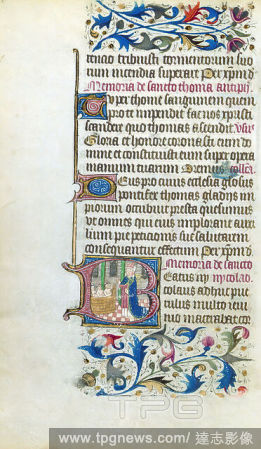 tenao tribuisti tormentorum suo
rum incendia superare Per xpm d
Memoria de sancto thoma antiph
Tu per thome sanguinem quem
pro te impendit fac nos xpe illuc
scandere quo thomas ascendit Vsus
Gloria et honore coronasti eum do
mine et constituisti eum super opera
manuum tuarum Oremus collect
Deus pro cuius ecclesia glosus
pontifex thomas gladijs im
piorum occubuit presta quesumus
ut omnes qui eius implorant auxi
lium pie peticionis sue salutarem
consequantur effectum Per xpm d
Memoria de sancto
Beatus ny nycolao
colaus adhuc pue
rulus multo ieiu
nio macerabat cor
TPG
www.tpgnews.com/ 達志影像